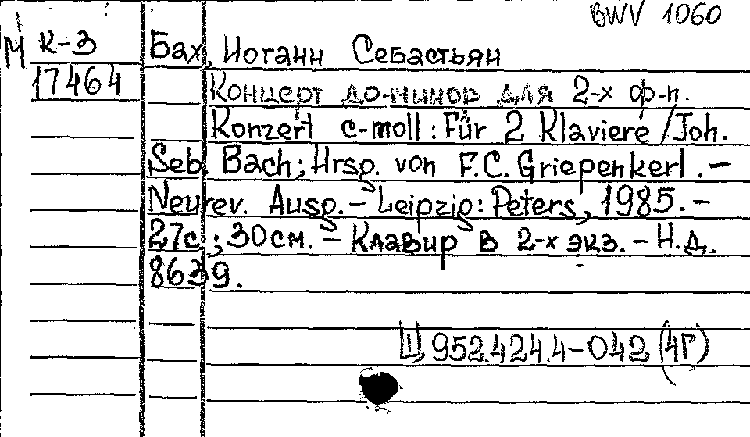 BWV 1060
М К-3 Бах, Иоганн Себастьян
17464 Концерт до-минор для 2-х ф-п.
Konzert c-moll: Für 2 Klaviere / Joh.
Seb. Bach; Hrsg. von F.C. Griepenkerl. –
Neurev. Ausg. – Leipzig: Peters, 1985. –
27с.; 30см. – Клавир в 2-х экз. – Н.Д.
8639.
Ц 952.424.4-042 (4Г)